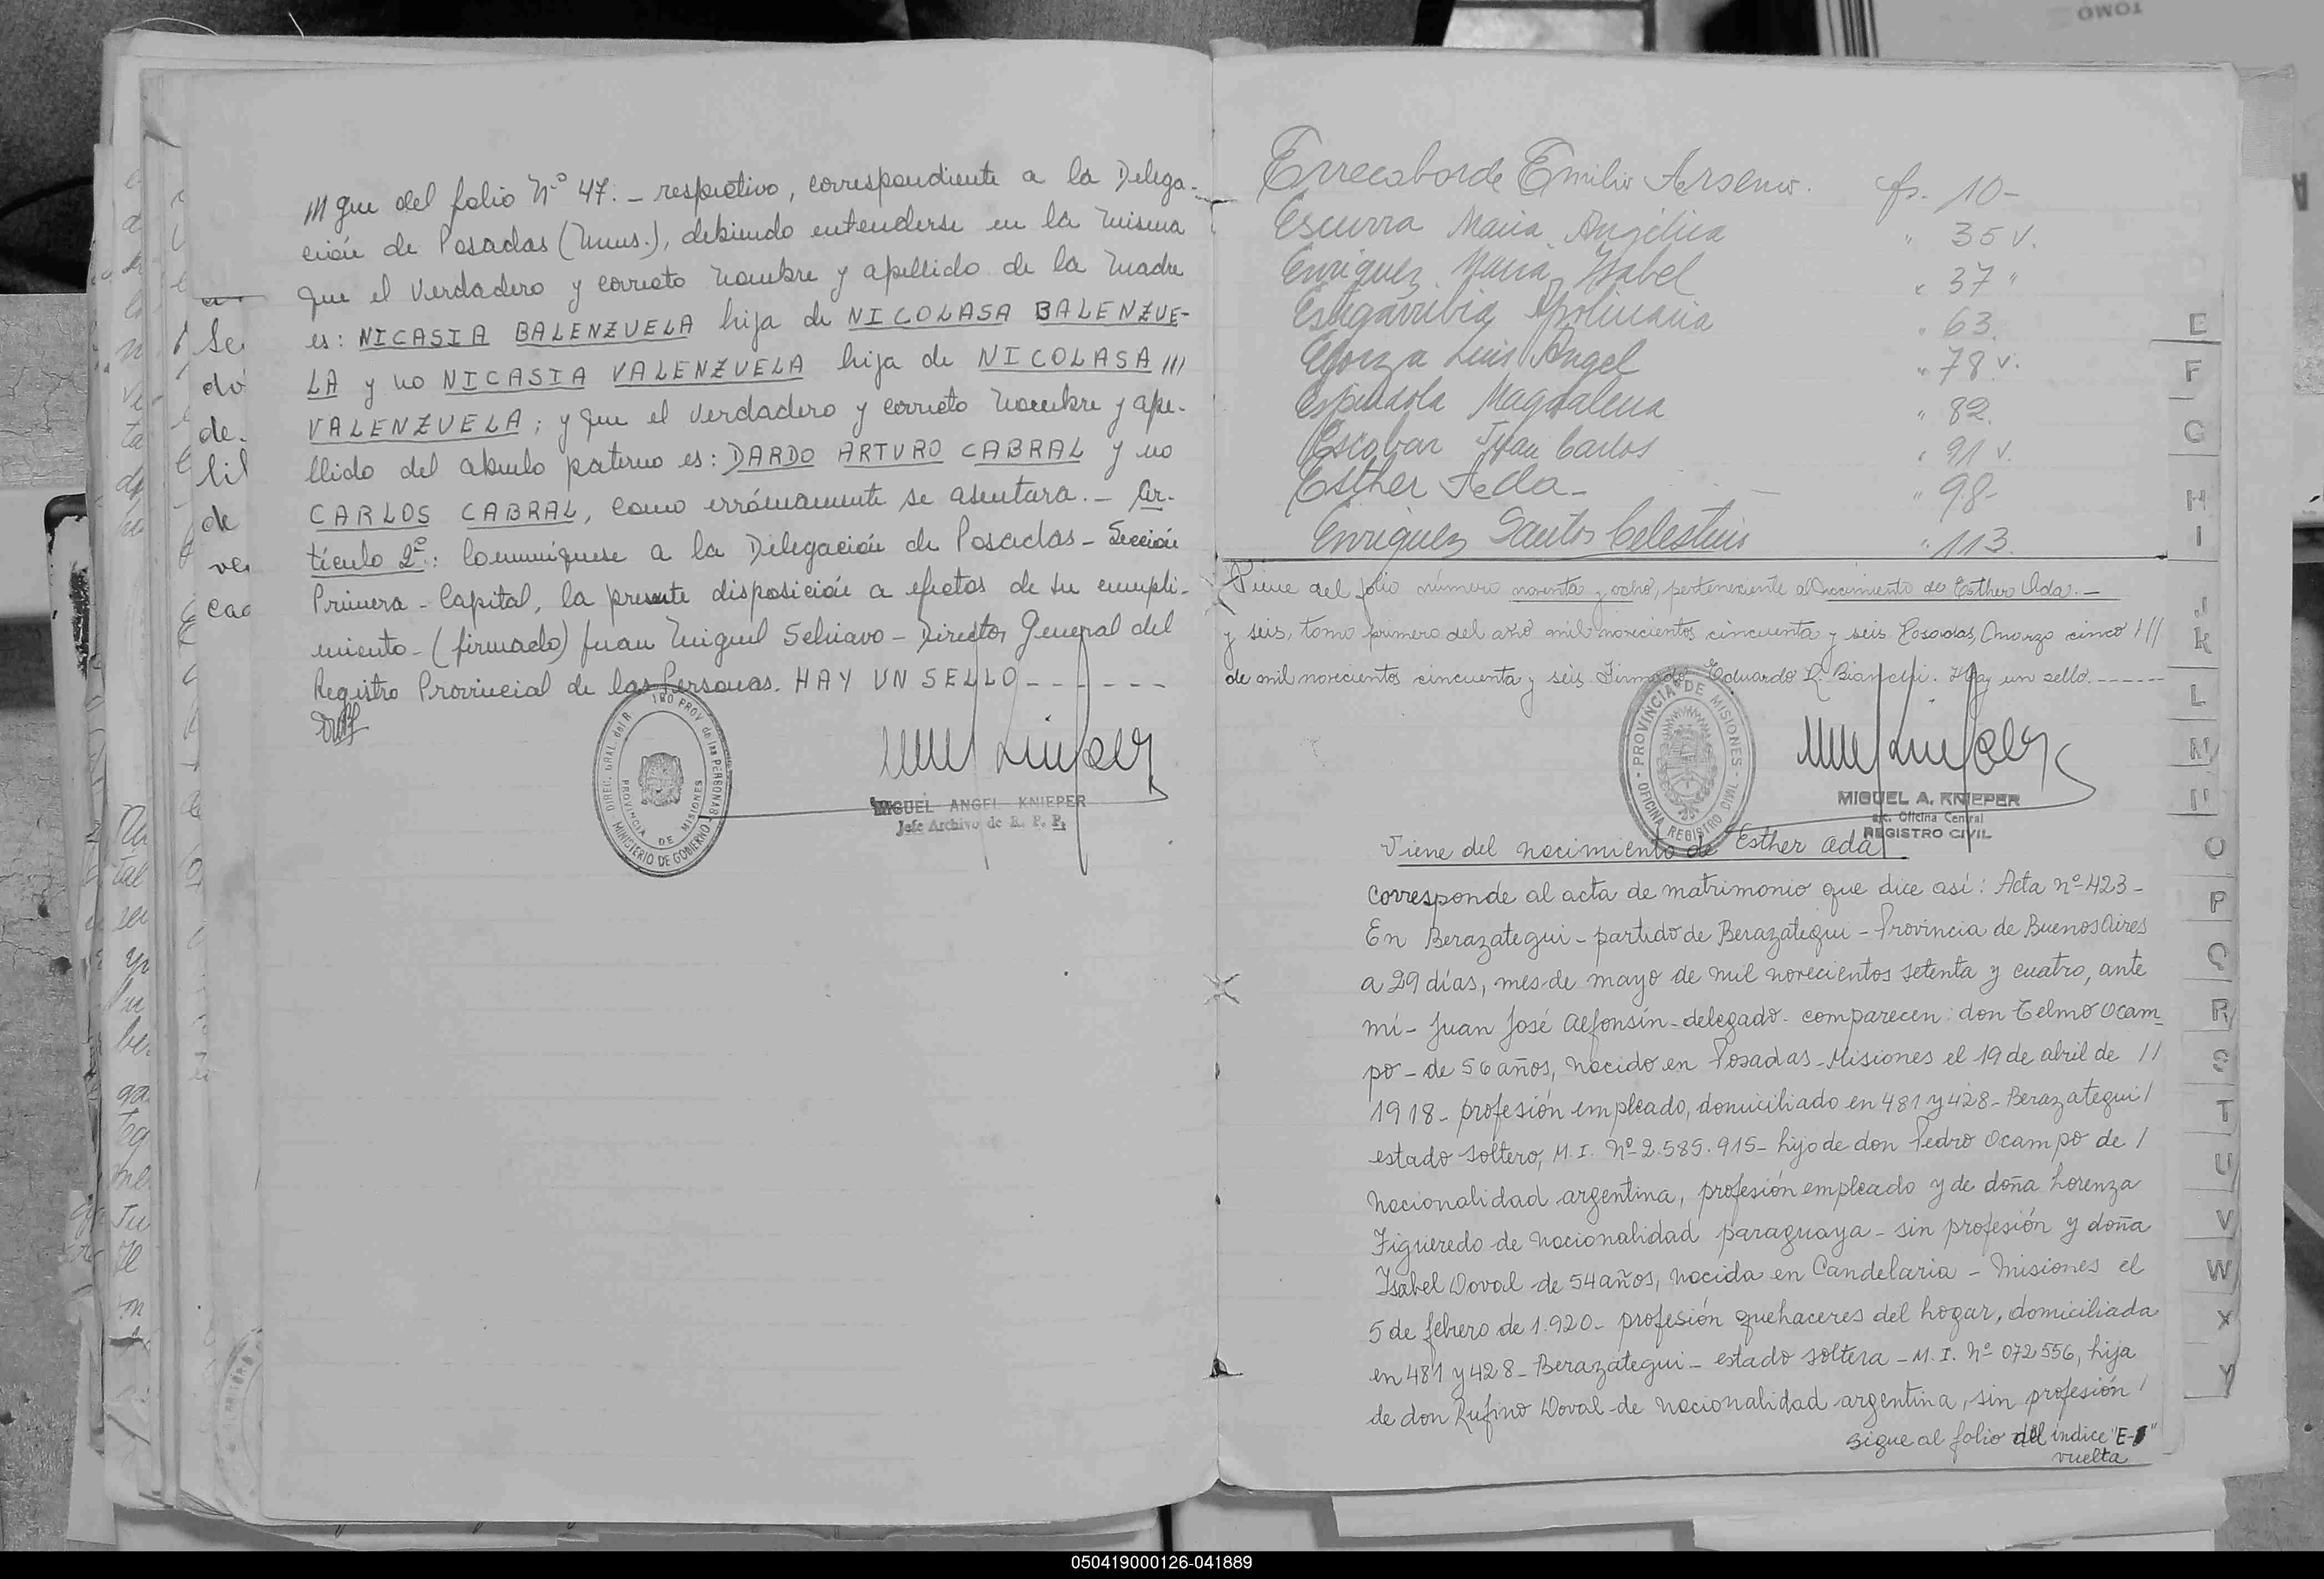 /// que del folio Nº 47. - respectivo, correspondiente a la Delega-
ción de Posadas (Mnes.), debiendo entenderse en la misma
que el verdadero y correcto nombre y apellido de la madre
es: NICASIA BALENZUELA hija de NICOLASA BALENZUE-
LA y no NICASIA VALENZUELA hija de NICOLASA ///
VALENZUELA; y que el verdadero y correcto nombre y ape-
llido del abuelo paterno es: DARDO ARTURO CABRAL y no
CARLOS CABRAL, como erróneamente se asentara. - Ar-
tículo 2º: Comuníquese a la Delegación de Posadas - Sección
Primera - Capital, la presente disposición a efectos de su cumpli-
miento - (firmado) Juan Miguel Schiavo - Director General del
Registro Provincial de las Personas. HAY UN SELLO - - - - - -
DIREC. GRAL. del R. PROV de las PERSONAS
PROVINCIA DE MISIONES
MINISTERIO DE GOBIERNO
MIGUEL ANGEL KNIEPER
Jefe Archivo de R. P. P.
Errecaborde Emilio Arsenio. fs. 10-
Escurra Maria Angélica " 35 v.
Enriquez Maria Ysabel " 37 "
Estigarribia Apolinaria " 63.
Luis Angel " 78 v.
Espindola Magdalena " 82.
Escobar Juan Carlos " 91 v.
Esther Aeda - " 98-
Enriquez Santos Celestino " 113.
Viene del folio número noventa y ocho, perteneciente al nacimiento de Esther Ada. -
y seis, tomo primero del año mil novecientos cincuenta y seis. Posadas, Marzo cinco ///
de mil novecientos cincuenta y seis. Firmado: Eduardo R. Bianchi. Hay un sello. - - - - - -
PROVINCIA DE MISIONES
OFICINA REGISTRO CIVIL
MIGUEL A. KNIEPER
a/c. Oficina Central
REGISTRO CIVIL
Viene del nacimiento de Esther Ada
Corresponde al acta de matrimonio que dice así: Acta nº 423 -
En Berazategui - partido de Berazategui - Provincia de Buenos Aires
a 29 días, mes de mayo de mil novecientos setenta y cuatro, ante
mí - Juan José Alfonsín - delegado - comparecen: don Telmo Ocam-
po - de 56 años, nacido en Posadas - Misiones el 19 de abril de //
1918 - profesión empleado, domiciliado en 481 y 428 - Berazategui /
estado soltero, M.I. Nº 2.585.915 - hijo de don Pedro Ocampo de /
nacionalidad argentina, profesión empleado y de doña Lorenza
Figueredo de nacionalidad paraguaya - sin profesión y doña
Isabel Doval - de 54 años, nacida en Candelaria - Misiones el
5 de febrero de 1.920 - profesión quehaceres del hogar, domiciliada
en 481 y 428 - Berazategui - estado soltera - M.I. Nº 072556, hija
de don Rufino Doval - de nacionalidad argentina, sin profesión /
sigue al folio del índice "E-
vuelta
E
F
G
H
I
J
K
L
M
N
O
P
Q
R
S
T
U
V
W
X
Y
TOMO
050419000126-041889